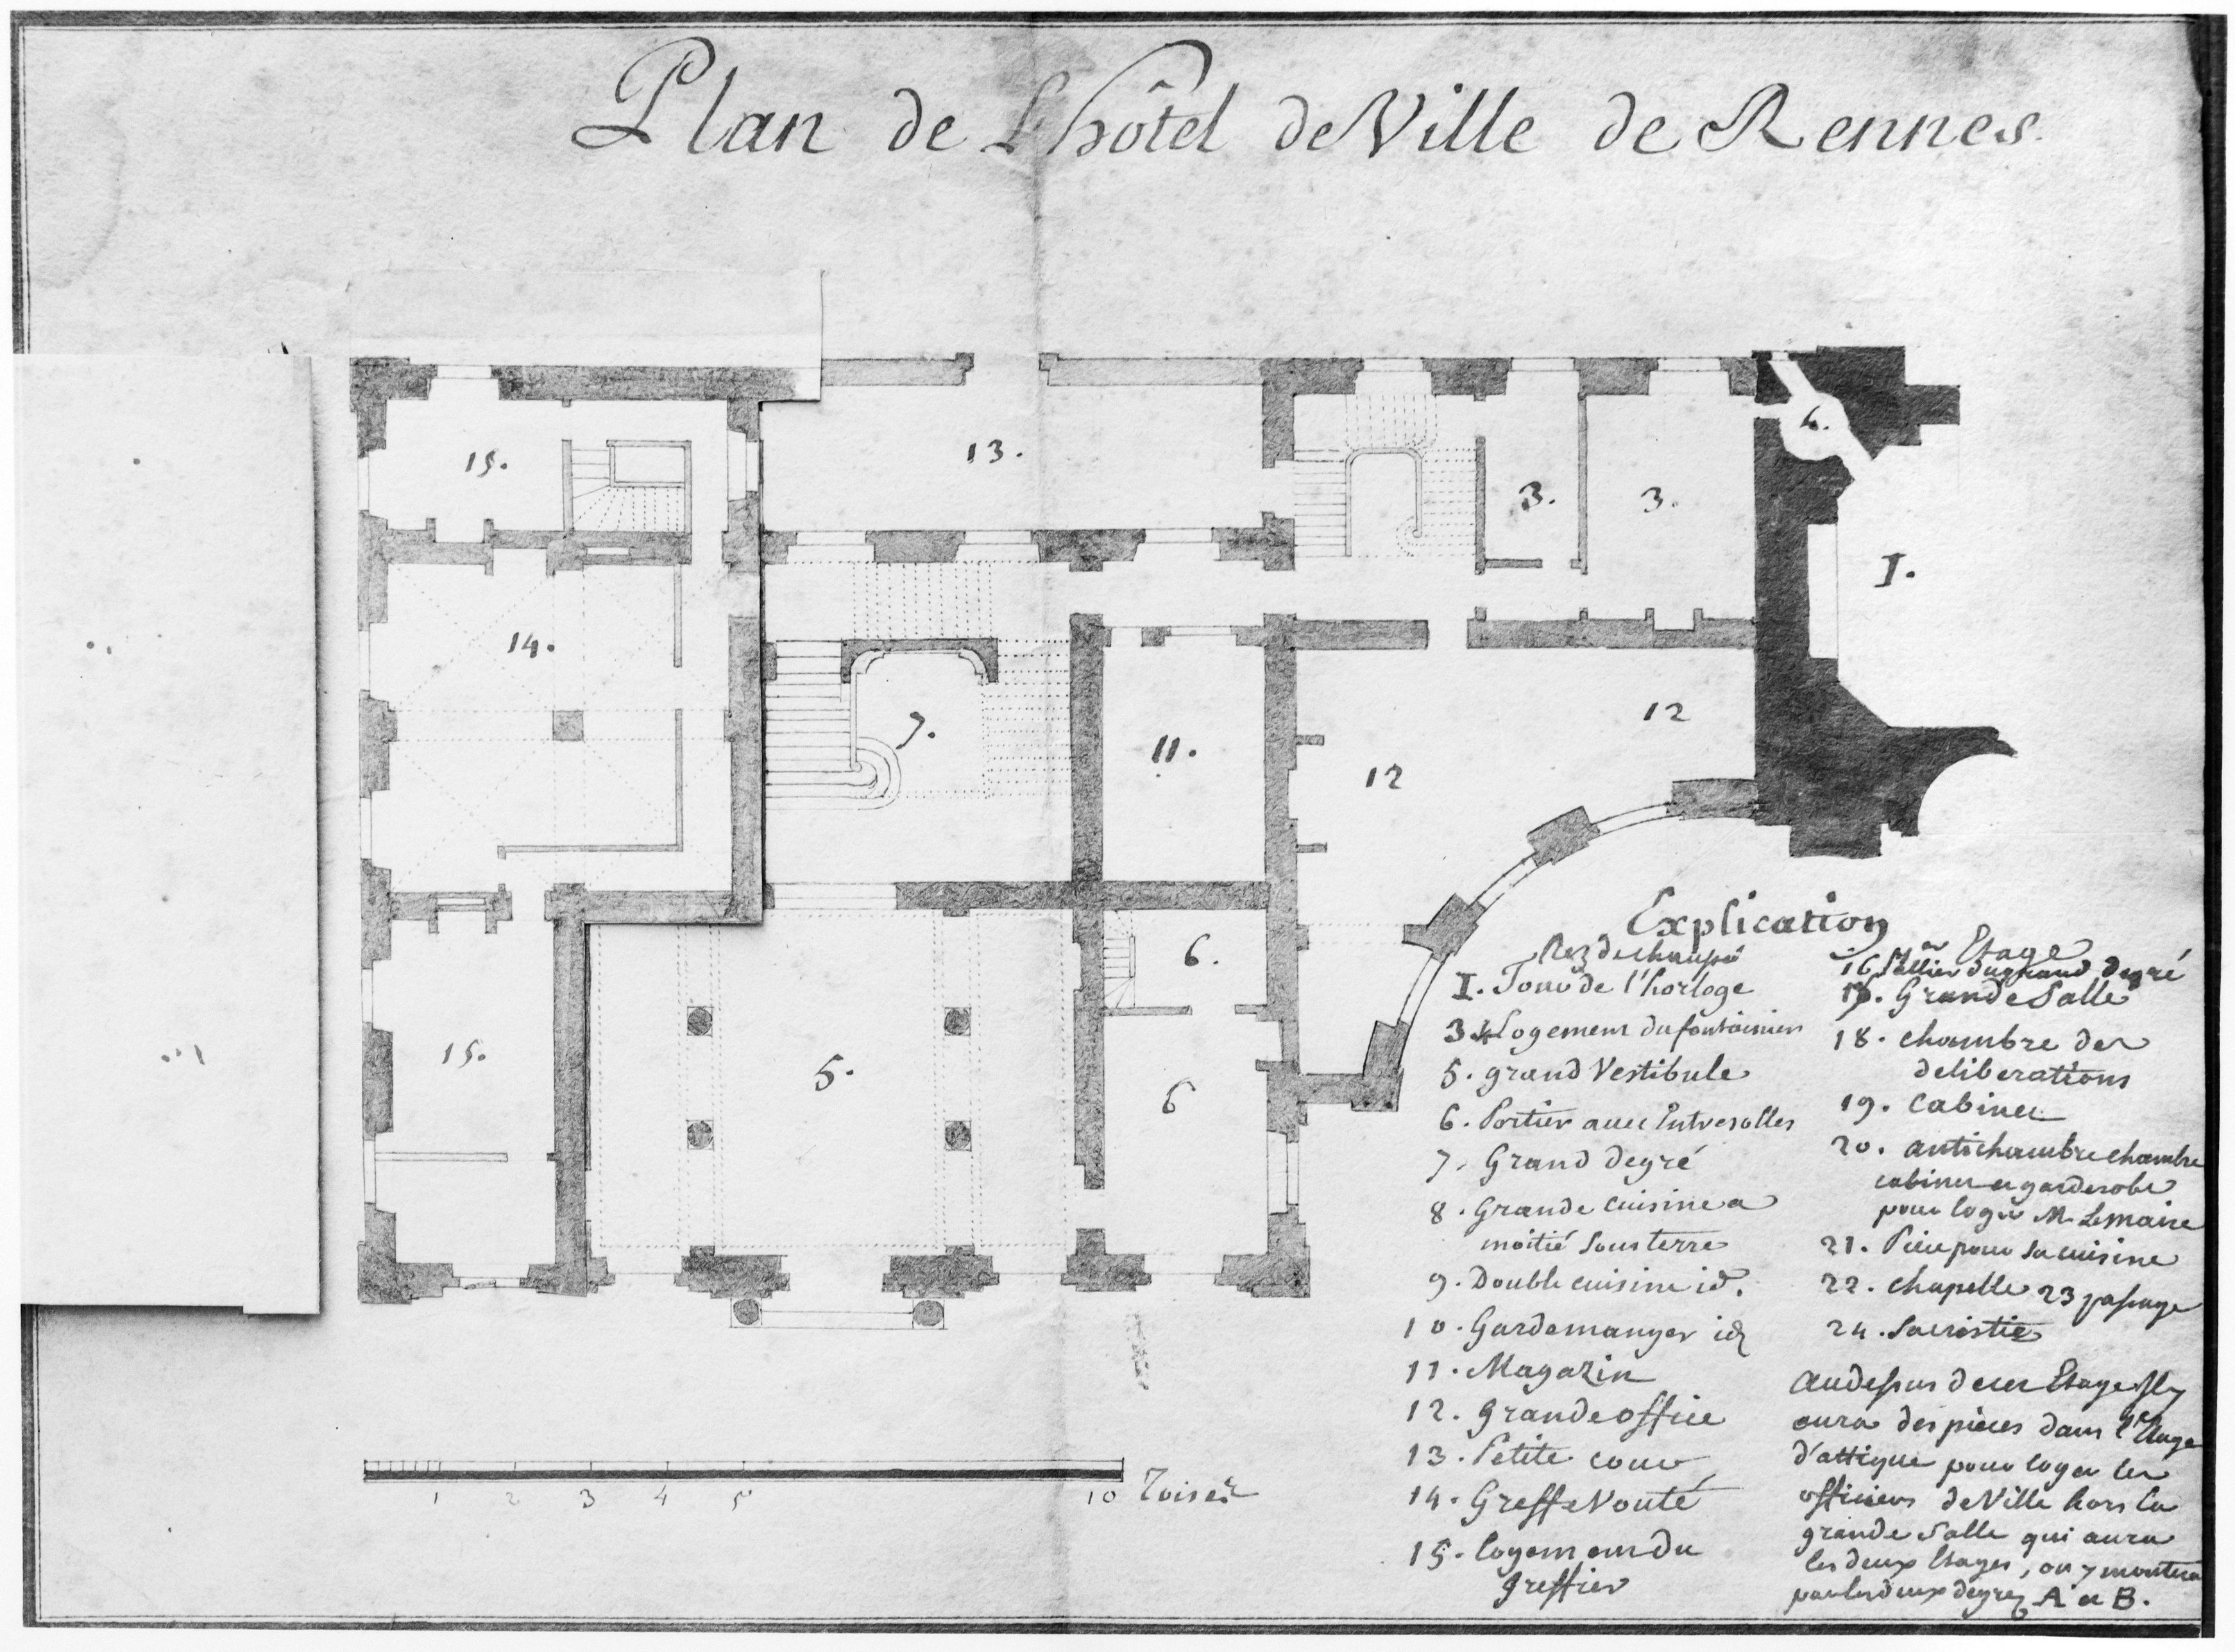 Plan de L'hôtel de Ville de Rennes.
15.
13.
3.
3.
4.
I.
14.
7.
11.
12
12
15.
5.
6.
6
1 2 3 4 5 10 Toises
Explication
Rez de chaussé
I. Tour de l'horloge
3 4 Logement du fontainier
5. grand Vestibule
6. Portier avec Entresolles
7. Grand degré
8. Grande cuisine a
moitié sous terre
9. Double cuisine id.
10. Gardemanger id
11. Magazin
12. grande office
13. Petite cour
14. Greffe Vouté
15. logement du
greffier
1er Etage
16 Pallier du grand degré
17. Grande Salle
18. chambre des
deliberations
19. Cabinet
20. antichambre chambre
cabinet et garderobe
pour loger M. Lemaire
21. Piece pour sa cuisine
22. chapelle 23 passage
24. Sacristie
au dessus de cet Etage Il y
aura des pieces dans l'Etage
d'attique pour loger les
officiers de Ville hors la
grande Salle qui aura
les deux Etages, on y montera
par les deux degrez A et B.